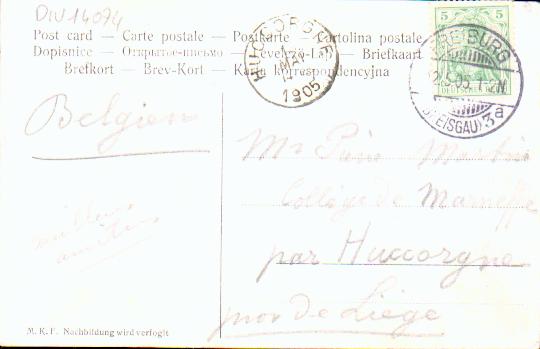 DIV14074
Post card — Carte postale — Postkarte — Cartolina postale
Dopisnice — Открытое письмо — Levelező-Lap — Briefkaart
Brefkort — Brev-Kort — Karta korrespondencyjna
5 5
DEUTSCHES
FREIBURG
(BREISGAU) 3a
HUCCORGNE
1 MAI
1905
Belgien
Mr
Collège de Marneffe
par Huccorgne
prov de Liège
M. K. F. Nachbildung wird verfoglt